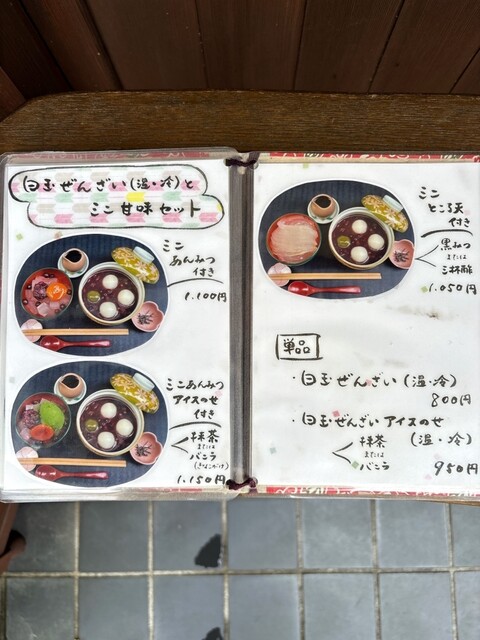 白玉ぜんざい(温・冷)と
ミニ甘味セット
ミニ
あんみつ
付き
1.100円
ミニあんみつ
アイスのせ
付き
抹茶
または
バニラ
(きなこがけ)
1.150円
ミニ
ところ天
付き
黒みつ
または
三杯酢
1.050円
単品
・白玉ぜんざい(温・冷)
800円
・白玉ぜんざいアイスのせ
(温・冷)
抹茶
または
バニラ
950円